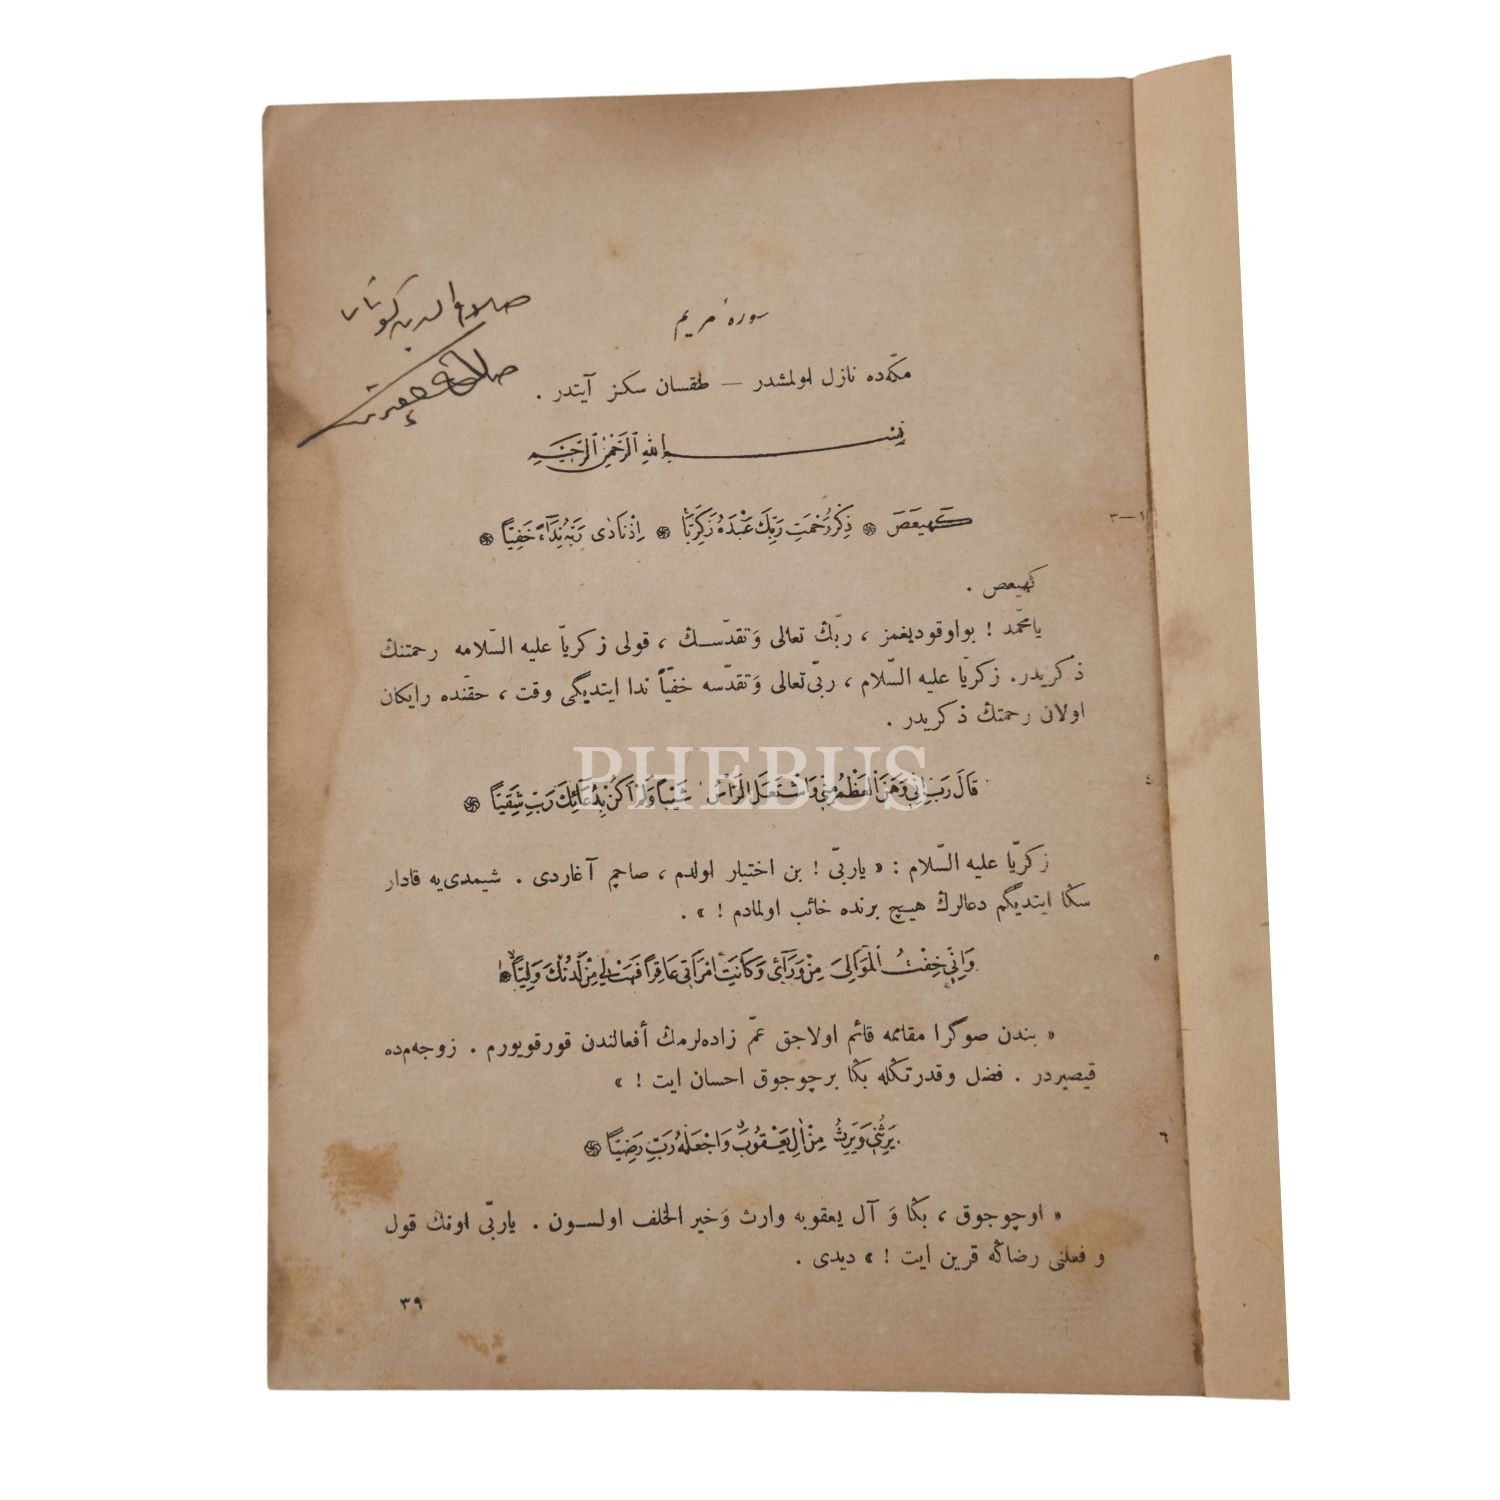 صلاح الدين
سورهٔ مريم
مكّه‌ده نازل اولمشدر — طقسان سكز آيتدر .
بِسْمِ اللهِ الرَّحْمٰنِ الرَّحِيمِ
١—٣
كَهٰيٰعَصَ ۞ ذِكْرُ رَحْمَتِ رَبِّكَ عَبْدَهُ زَكَرِيَّا ۞ اِذْ نَادٰى رَبَّهُ نِدَآءً خَفِيًّا ۞
كهيعص .
يامحمّد ! بواوقوديغمز ، ربّڭ تعالى وَتقدّسـڭ ، قولى زكريّا عليه السّلامه رحمتنڭ
ذكريدر. زكريّا عليه السّلام ، ربّى تعالى وَتقدّسه خفيّاً ندا ايتديگى وقت ، حقّنده رايكان
اولان رحمتڭ ذكريدر .
٤
قَالَ رَبِّ اِنِّى وَهَنَ الْعَظْمُ مِنِّى وَاشْتَعَلَ الرَّأْسُ شَيْبًا وَلَمْ اَكُنْ بِدُعَآئِكَ رَبِّ شَقِيًّا ۞
زكريّا عليه السّلام : « ياربّى ! بن اختيار اولدم ، صاچم آغاردى . شيمدى‌يه قادار
سڭا ايتديگم دعالرڭ هيچ برنده خائب اولمادم ! » .
٥
وَاِنِّى خِفْتُ الْمَوَالِىَ مِنْ وَرَآئِى وَكَانَتِ امْرَاَتِى عَاقِرًا فَهَبْ لِى مِنْ لَدُنْكَ وَلِيًّا ۞
« بندن صوگرا مقاممه قائم اولاجق عمّ زاده‌لرمڭ أفعالندن قورقويورم . زوجه‌م‌ده
قيصيردر . فضل وقدرتڭله بڭا برچوجوق احسان ايت ! »
٦
يَرِثُنِى وَيَرِثُ مِنْ اٰلِ يَعْقُوبَ وَاجْعَلْهُ رَبِّ رَضِيًّا ۞
« اوچوجوق ، بڭا وَ آل يعقوبه وارث وَخير الخلف اولسون . ياربّى اونڭ قول
و فعلنى رضاڭه قرين ايت ! » ديدى .
٣٩
PHEBUS